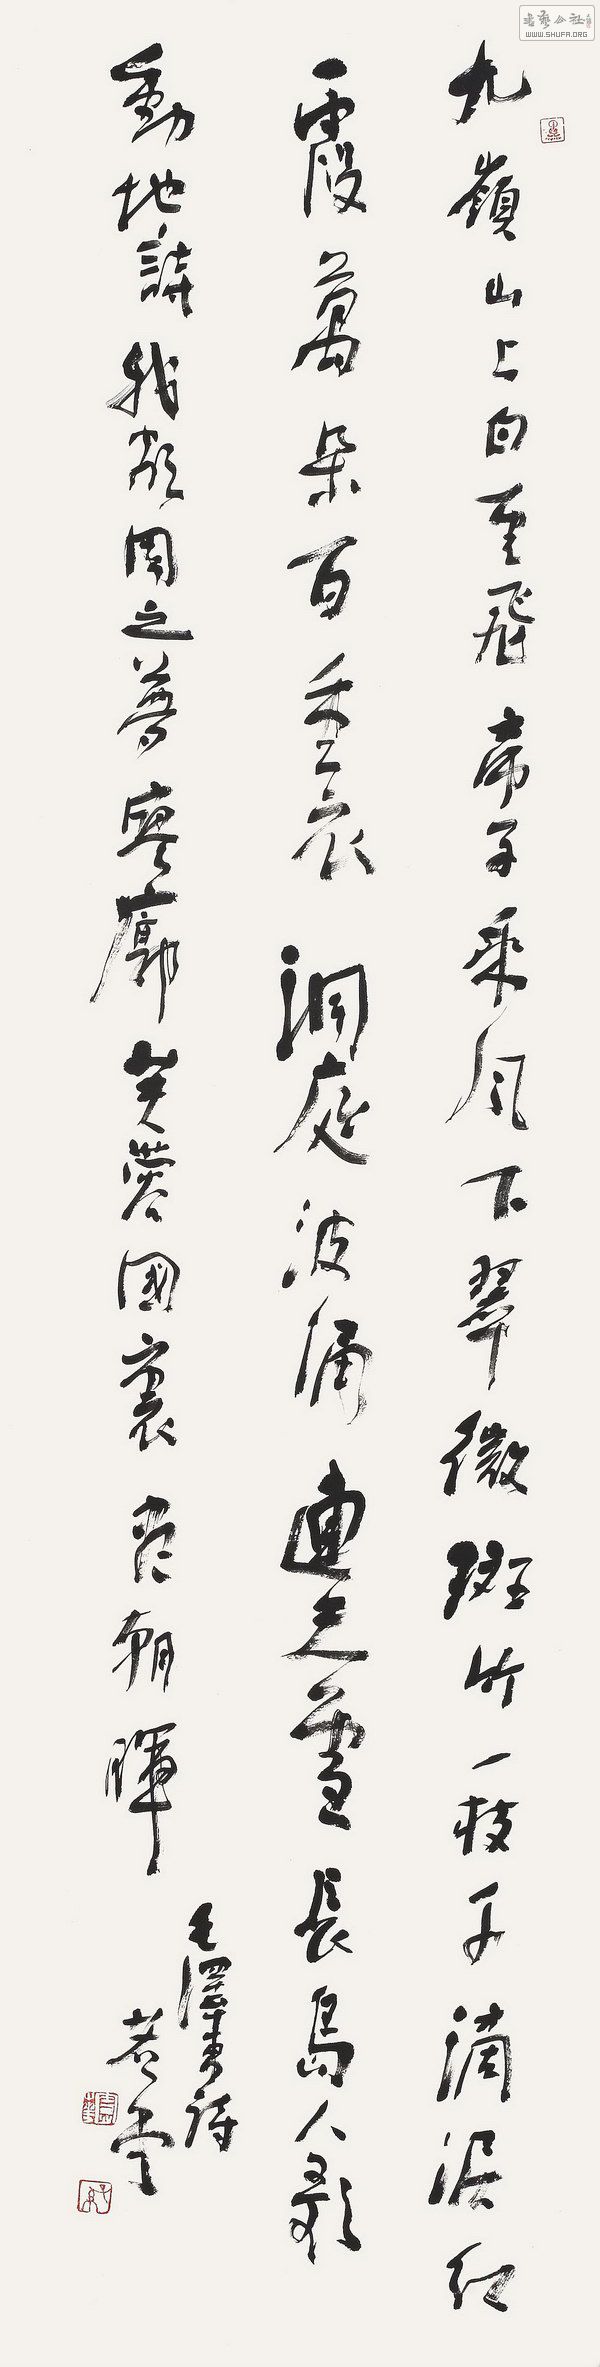 書藝公社
WWW.SHUFA.ORG
九嶷山上白雲飛帝子乘風下翠微斑竹一枝千滴淚紅
霞萬朵百重衣洞庭波涌連天雪長島人歌
動地詩我欲因之夢寥廓芙蓉國裏尽朝暉
毛澤東詩